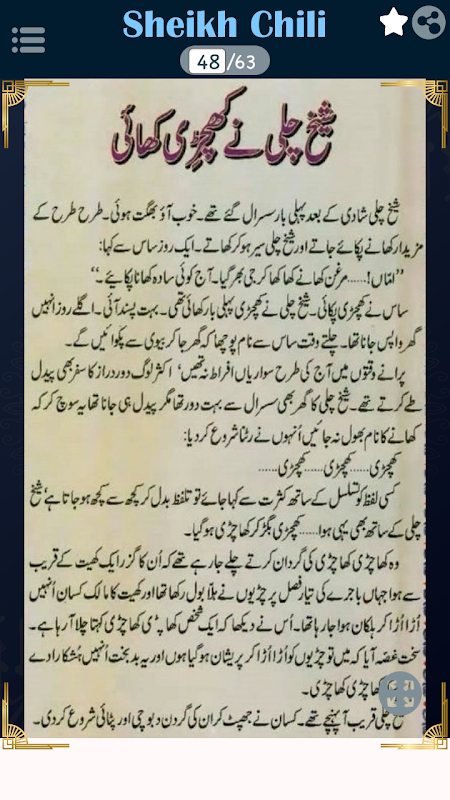 Sheikh Chili
48/63
شیخ چلی نے کھچڑی کھائی
شیخ چلی شادی کے بعد پہلی بار سسرال گئے تھے۔ خوب آؤ بھگت ہوئی۔ طرح طرح کے
مزیدار کھانے پکائے جاتے اور شیخ چلی سیر ہو کر کھاتے۔ ایک روز ساس سے کہا:
”امّاں!......مرغن کھانے کھا کھا کر جی بھر گیا۔ آج کوئی سادہ کھانا پکائیے۔“
ساس نے کھچڑی پکائی۔ شیخ چلی نے کھچڑی پہلی بار کھائی تھی۔ بہت پسند آئی۔ اگلے روز انہیں
گھر واپس جانا تھا۔ چلتے وقت ساس سے نام پوچھا کہ گھر جا کر بیوی سے پکوائیں گے۔
پرانے وقتوں میں آج کی طرح سواریاں افراط نہ تھیں‘ اکثر لوگ دور دراز کا سفر بھی پیدل
طے کرتے تھے۔ شیخ چلی کا گھر بھی سسرال سے بہت دور تھا مگر پیدل ہی جانا تھا یہ سوچ کر کہ
کھانے کا نام بھول نہ جائیں اُنہوں نے رٹنا شروع کر دیا:
کھچڑی......کھچڑی......کھچڑی......
کسی لفظ کو تسلسل کے ساتھ کثرت سے کہا جائے تو تلفظ بدل کر کچھ سے کچھ ہو جاتا ہے‘ شیخ
چلی کے ساتھ بھی یہی ہوا......کھچڑی بگڑ کر کھا چڑی ہو گیا۔
وہ کھا چڑی کھا چڑی کی گردان کرتے چلے جا رہے تھے کہ اُن کا گزر ایک کھیت کے قریب
سے ہوا جہاں باجرے کی تیار فصل پر چڑیوں نے ہلّا بول رکھا تھا اور کھیت کا مالک کسان اُنہیں
اُڑا اُڑا کر ہلکان ہوا جا رہا تھا۔ اُس نے دیکھا کہ ایک شخص کھا چڑی کھا چڑی کہتا چلا آ رہا ہے۔
سخت غصہ آیا کہ میں تو چڑیوں کو اُڑا اُڑا کر پریشان ہو گیا ہوں اور یہ بدبخت اُنہیں ہشکارا دے
کھا چڑی کھا چڑی۔
شیخ چلی قریب آ پہنچے تھے۔ کسان نے جھپٹ کر ان کی گردن دبوچی اور پٹائی شروع کر دی۔